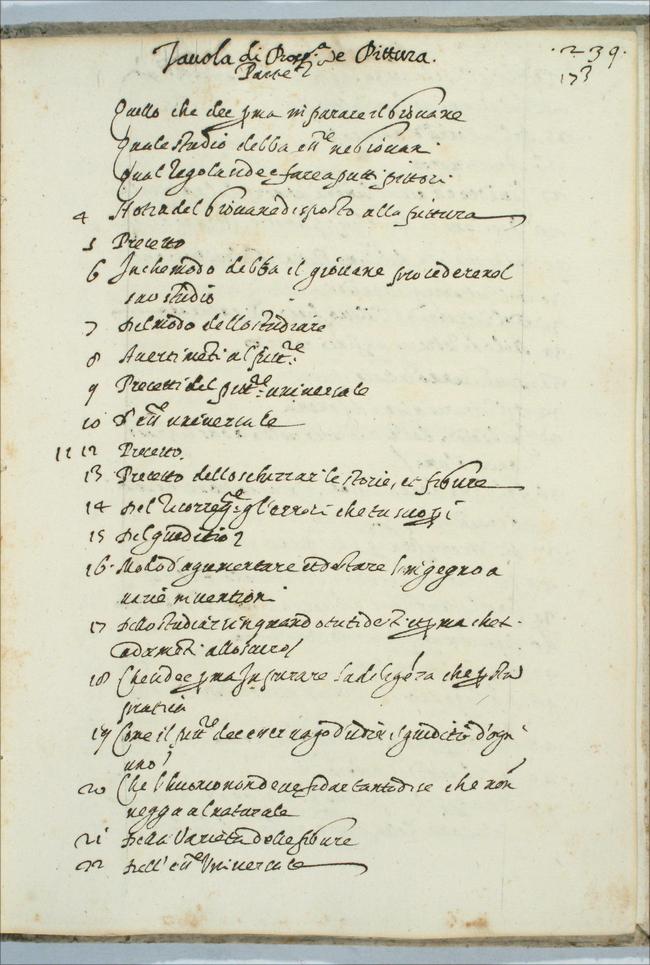 Tauola di Prosp.a e Pittura.
Parte
.239.
173
Quello che dee pma imparare il giouane
Quale studio debba eere ne giouani
Qual regola si dee fare a putti pittori
4 Notia del giouane disposto alla pittura
5 Precetto
6 In che modo debba il giouane procedere nel
suo studio
7 Del modo dello studiare
8 Auertimeti al pitt.re
9 Precetti del pitt.re uniuersale
10 uniuersale
11 12 Precetto.
13 Precetto dello schizzar le storie, et figure
14 Del correg.e gl'errori che tu scopi
15 Del giuditio
16. Modo d'agumentare et destare l'ingegno a
uarie inuentioni
17 Dello studiar in quando tu ti desti et pma che t.
adormeti allo scuro
18 Che si dee pma Imparare la diligeza che psta
pratica
19 Come il pitt.re dee eere uago d'udir il giuditio d'ogni
uno
20 Che l'huomo non deue fidar tanto di se che non
uegga al naturale
21 Della Varietà delle figure
22 Dell' Vniuersale